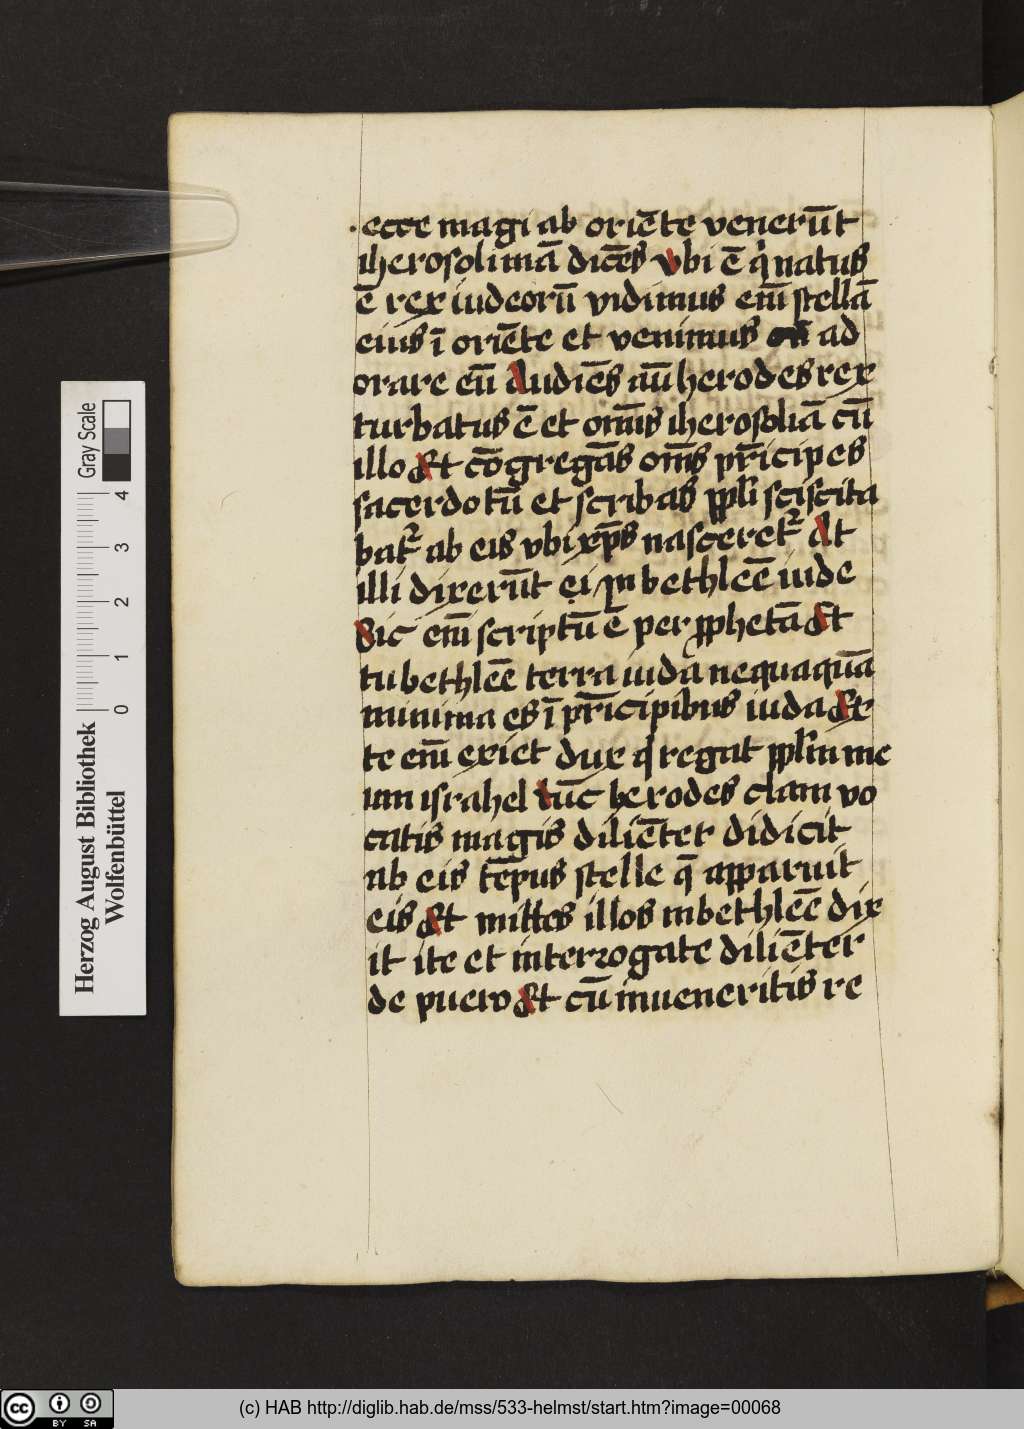 ecce magi ab oriēte venerūt
iherosolimā dicēs vbi ē q natus
ē rex iudeorū vidimus em̄ stellā
eius ī oriēte et venimus ad
orare eū Audiēs aūt herodes rex
turbatus ē et om̄is iherosoliā cū
illo Et cōgregās om̄s pr̄icipes
sacerdotū et scribas ppli sciscita
bat᷑ ab eis vbi xp̄s nasceret᷑ At
illi dixerūt ei In bethleē iude
Sic em̄ scriptū ē per pphetā Et
tu bethleē terra iuda nequaquā
minima es ī pr̄icipibus iuda Ex
te em̄ exiet dux q regat pplm me
um israhel tūc herodes clam vo
catis magis diliēter didicit
ab eis tēpus stelle q̄ apparuit
eis Et mittes illos in bethleē dix
it ite et interrogate diliēter
de puero Et cū inueneritis re
Herzog August Bibliothek
Wolfenbüttel
Gray Scale
0 1 2 3 4
cc BY SA
(c) HAB http://diglib.hab.de/mss/533-helmst/start.htm?image=00068